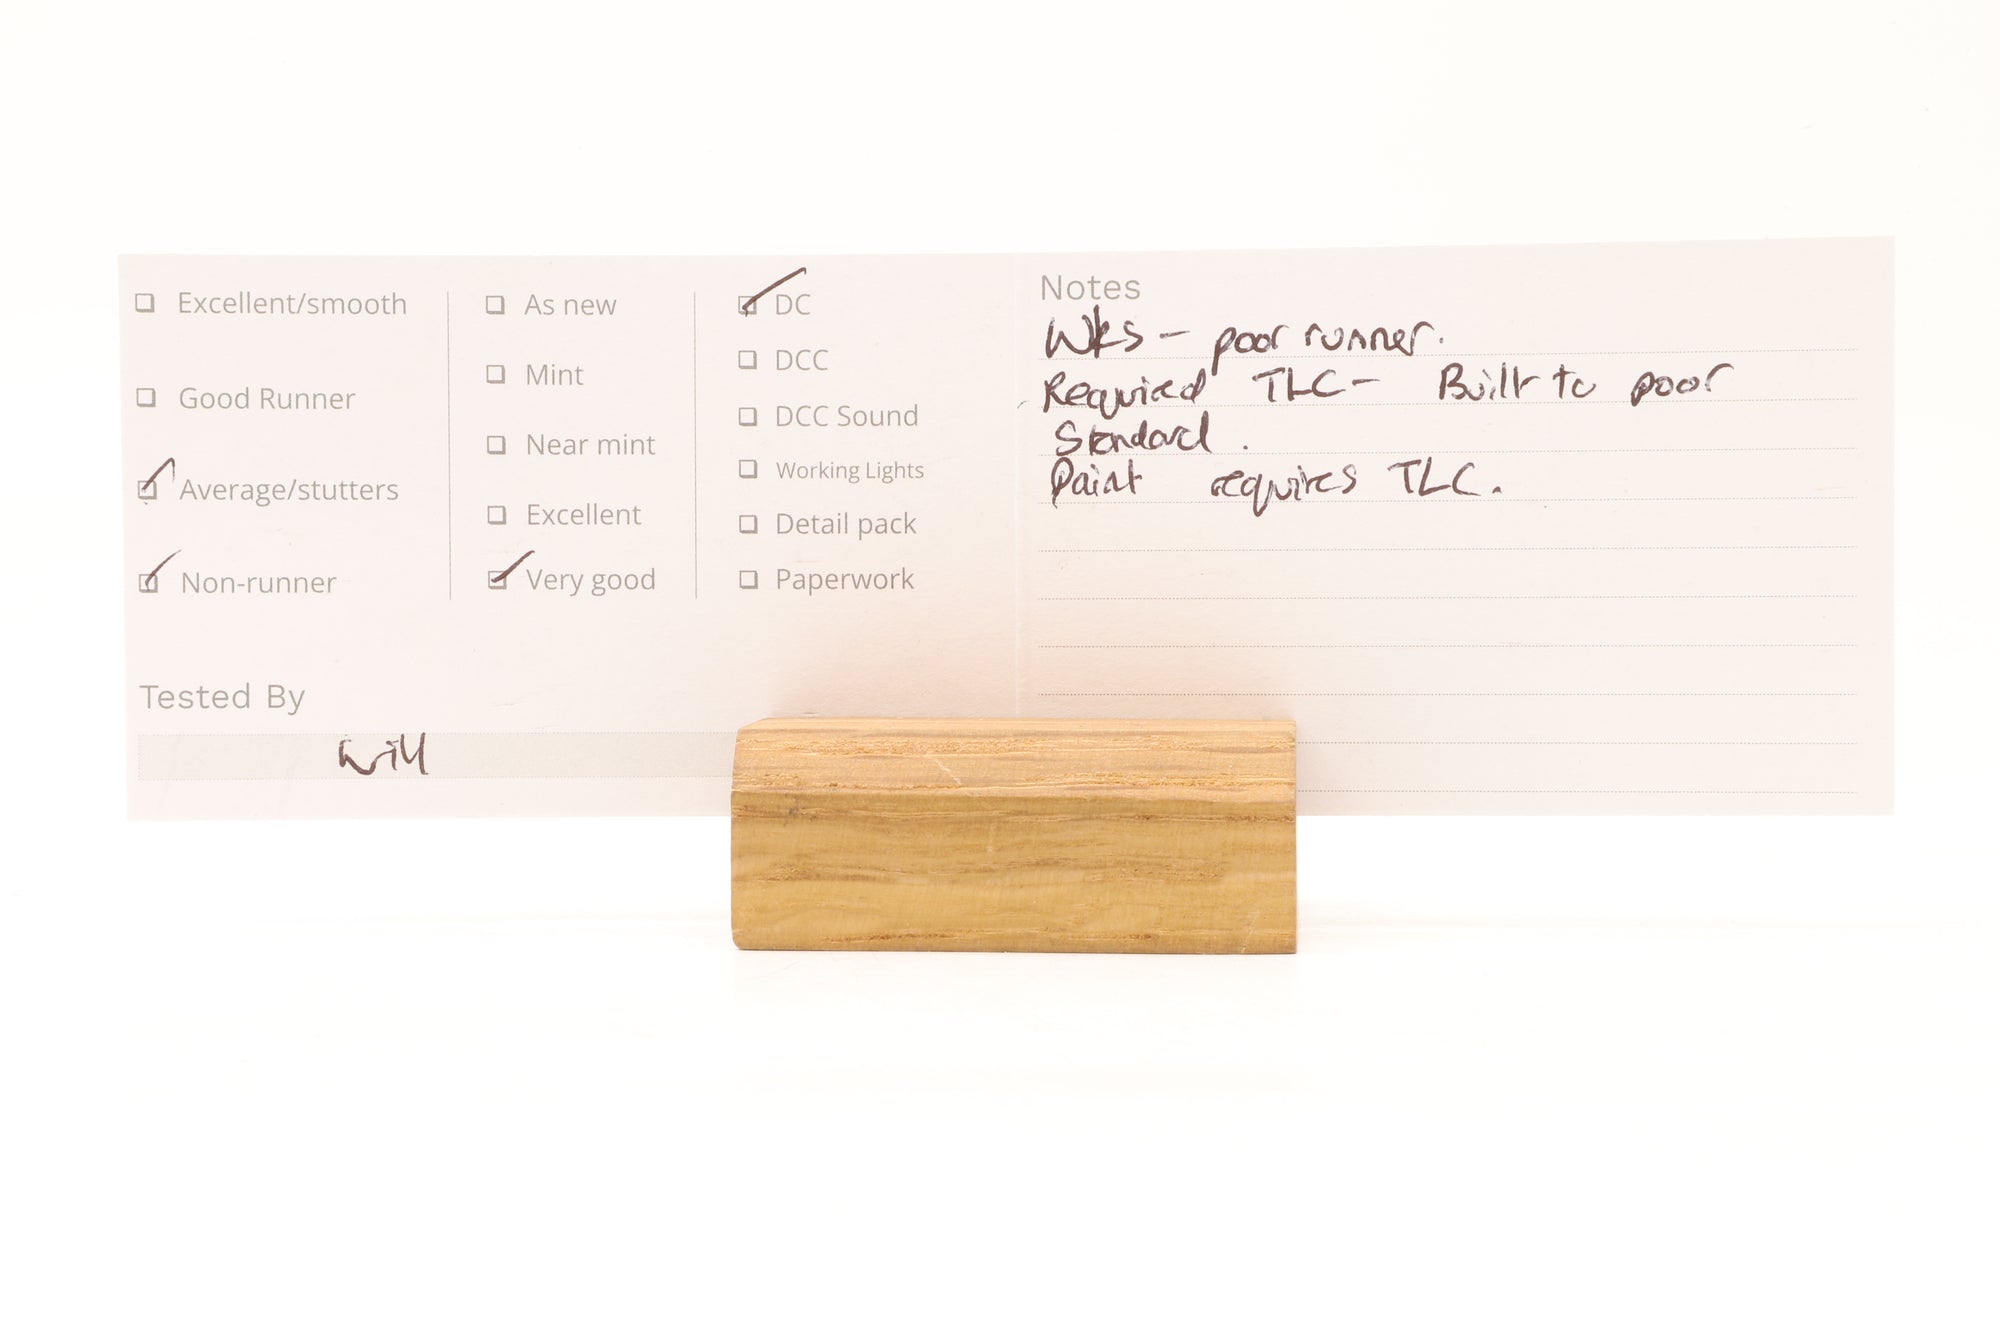 Excellent/smooth
Good Runner
Average/stutters
Non-runner
As new
Mint
Near mint
Excellent
Very good
DC
DCC
DCC Sound
Working Lights
Detail pack
Paperwork
Tested By
Will
Notes
Wks - poor runner.
Required TLC - Built to poor
Standard.
Paint requires TLC.